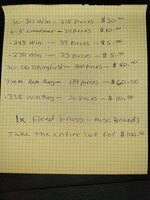 30-30 Win — 215 Pieces $30.00
6.5 Creedmoor — 31 Pieces $10.00
.243 Win — 39 Pieces — $5.00
.270 Win — 23 Pieces — $5.00
30-06 Springfield — Pieces — $40.00
7mm Rem Mag — Pieces — $60.00
.338 Win Mag — 20 Pieces — $10.00
1x Fired brass — Misc Brands
Take the entire lot for $100.00